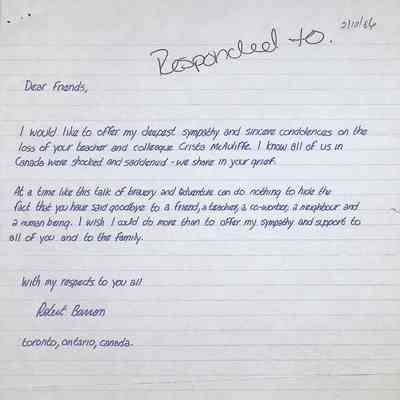 2/10/86
Responded to.
Dear Friends,
I would like to offer my deepest sympathy and sincere condolences on the
loss of your teacher and colleague Crista McAuliffe. I know all of us in
Canada were shocked and saddened - we share in your grief.
At a time like this talk of bravery and adventure can do nothing to hide the
fact that you have said goodbye to a friend, a teacher, a co-worker, a neighbour and
a human being. I wish I could do more than to offer my sympathy and support to
all of you and to the family.
With my respects to you all
Robert Barron
toronto, ontario, canada.